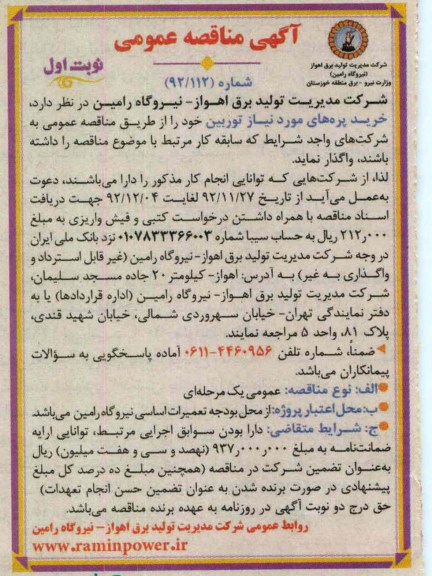 آگهی مناقصه عمومی
شرکت مدیریت تولید برق اهواز
(نیروگاه رامین)
وزارت نیرو - برق منطقه خوزستان
نوبت اول
شماره (۹۲/۱۱۲)
شرکت مدیریت تولید برق اهواز- نیروگاه رامین در نظر دارد،
خرید پره‌های مورد نیاز توربین خود را از طریق مناقصه عمومی به
شرکت‌های واجد شرایط که سابقه کار مرتبط با موضوع مناقصه را داشته
باشند، واگذار نماید.
لذا، از شرکت‌هایی که توانایی انجام کار مذکور را دارا می‌باشند، دعوت
به‌عمل می‌آید از تاریخ ۹۲/۱۱/۲۷ لغایت ۹۲/۱۲/۰۴ جهت دریافت
اسناد مناقصه با همراه داشتن درخواست کتبی و فیش واریزی به مبلغ
۲۱۲٫۰۰۰ ریال به حساب سیبا شماره ۰۱۰۷۸۳۳۳۶۶۰۰۳ نزد بانک ملی ایران
در وجه شرکت مدیریت تولید برق اهواز- نیروگاه رامین (غیر قابل استرداد و
واگذاری به غیر) به آدرس: اهواز- کیلومتر ۲۰ جاده مسجد سلیمان،
شرکت مدیریت تولید برق اهواز- نیروگاه رامین (اداره قراردادها) یا به
دفتر نمایندگی تهران- خیابان سهروردی شمالی، خیابان شهید قندی،
پلاک ۸۱، واحد ۵ مراجعه نمایند.
ضمناً، شماره تلفن ۴۴۶۰۹۵۶-۰۶۱۱ آماده پاسخگویی به سؤالات
پیمانکاران می‌باشد.
الف: نوع مناقصه: عمومی یک مرحله‌ای
ب: محل اعتبار پروژه: از محل بودجه تعمیرات اساسی نیروگاه رامین می‌باشد.
ج: شرایط متقاضی: دارا بودن سوابق اجرایی مرتبط، توانایی ارایه
ضمانت‌نامه به مبلغ ۹۳۷٫۰۰۰٫۰۰۰ (نهصد و سی و هفت میلیون) ریال
به‌عنوان تضمین شرکت در مناقصه (همچنین مبلغ ده درصد کل مبلغ
پیشنهادی در صورت برنده شدن به عنوان تضمین حسن انجام تعهدات)
حق درج دو نوبت آگهی در روزنامه به عهده برنده مناقصه می‌باشد.
روابط عمومی شرکت مدیریت تولید برق اهواز- نیروگاه رامین
www.raminpower.ir